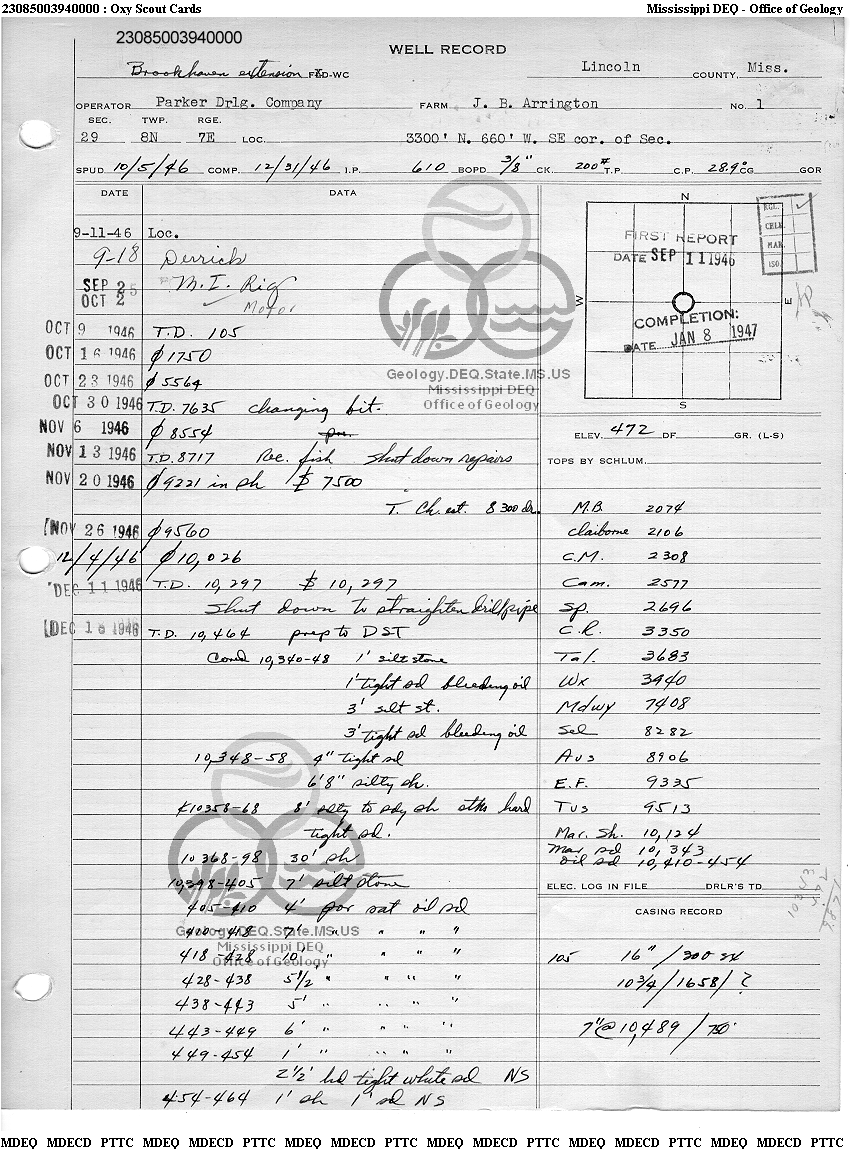 23085003940000 : Oxy Scout Cards Mississippi DEQ - Office of Geology
23085003940000
WELL RECORD
Brookhaven extension FXD-WC Lincoln COUNTY, Miss.
OPERATOR Parker Drlg. Company FARM J. B. Arrington No. 1
SEC. TWP. RGE.
29 8N 7E LOC. 3300' N. 660' W. SE cor. of Sec.
SPUD 10/5/46 COMP. 12/31/46 I.P. 610 BOPD 3/8" CK. 200# T.P. C.P. 28.9° CG GOR
DATE DATA
9-11-46 Loc.
9-18 Derrick
SEP 25 M.I. Rig
OCT 2 Motor
OCT 9 1946 T.D. 105
OCT 16 1946 ϕ 1750
OCT 23 1946 ϕ 5564
OCT 30 1946 T.D. 7635 changing bit.
NOV 6 1946 ϕ 8554
NOV 13 1946 T.D. 8717 Rec. fish Shut down repairs
NOV 20 1946 ϕ 9221 in sh $ 7500
T. Ch. est. 8300 dr.
NOV 26 1946 ϕ 9560
12/4/46 ϕ 10,026
DEC 11 1946 T.D. 10,297 $ 10,297
Shut down to straighten drillpipe
DEC 18 1946 T.D. 10,464 prep to DST
Cored 10,340-48 1' siltstone
1' tight sd bleeding oil
3' silt st.
3' tight sd bleeding oil
10,348-58 4" tight sd
6'8" silty sh.
10358-68 8' silty to sdy sh hard
tight sd.
10368-98 30' sh
10,398-405 7' silt stone
405-410 4' por sat oil sd
410-418 2' " " " "
418-428 10' " " " "
428-438 5 1/2' " " " "
438-443 5' " " " "
443-449 6' " " " "
449-454 1' " " " "
2 1/2' hd tight white sd NS
454-464 1' sh 1' sd NS
N
W
E
S
FIRST REPORT
DATE SEP 11 1946
COMPLETION:
DATE JAN 8 1947
RGL.
CHLK.
MAR.
ISO.
ELEV. 472 DF GR. (L-S)
TOPS BY SCHLUM.
M.B. 2074
Claiborne 2106
C.M. 2308
Cam. 2577
Sp. 2696
C.R. 3350
Tal. 3683
Wx 3940
Mdwy 7408
Sel 8282
Aus 8906
E.F. 9335
Tus 9513
Mar. Sh. 10,124
Mar sd 10,343
oil sd 10,410-454
ELEC. LOG IN FILE DRLR'S TD
CASING RECORD
105 16" / 200 sx
10 3/4 / 1658 / ?
7" @ 10,489 / 750
Geology.DEQ.State.MS.US
Mississippi DEQ
Office of Geology
Geology.DEQ.State.MS.US
Mississippi DEQ
Office of Geology
MDEQ MDECD PTTC MDEQ MDECD PTTC MDEQ MDECD PTTC MDEQ MDECD PTTC MDEQ MDECD PTTC MDEQ MDECD PTTC